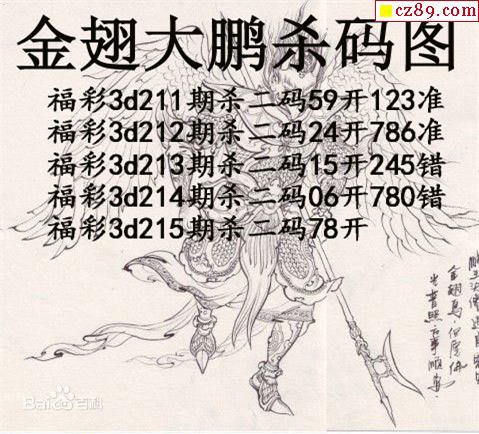 cz89.com
金翅大鹏杀码图
福彩3d211期杀二码59开123准
福彩3d212期杀二码24开786准
福彩3d213期杀二码15开245错
福彩3d214期杀二码06开780错
福彩3d215期杀二码78开
Bai百科